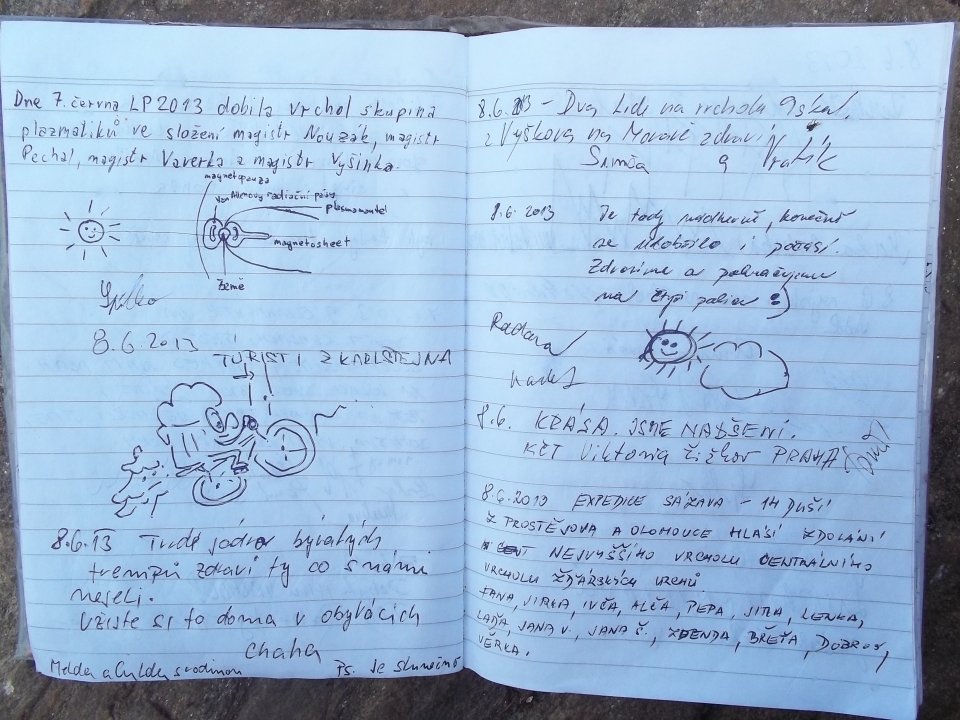 Dne 7. června LP 2013 dobila vrchol skupina
plazmatiků ve složení magistr Nouzák, magistr
Pechal, magistr Vaverka a magistr Vyšinka.
magnetopauza
Van Allenovy radiační pásy
plasmamantel
magnetosheet
Země
8.6.2013
TURISTI Z KARLŠTEJNA
8.6.13 Tudé jádro bývalých
trempů zdraví ty co s námi
nešli.
Užijte si to doma v obývácích
chaha
s rodinou
Ps. Je slunečno
8.6.13 - Dva lidi na vrcholu 9 skal.
z Vyškova na Moravě zdraví
Simča a Vratík
8.6.2013 Je tady nádherně, konečně
se umoudřilo i počasí.
Zdravíme a pokračujeme
na čtyři palice :)
Radana
8.6. KRÁSA. JSME NADŠENÍ.
KČT Viktoria Žižkov PRAHA
8.6.2013 EXPEDICE SÁZAVA - 14 DUŠÍ
Z PROSTĚJOVA A OLOMOUCE HLÁSÍ ZDOLÁNÍ
NEJVYŠŠÍHO VRCHOLU CENTRÁLNÍHO
VRCHOLU ŽĎÁRSKÝCH VRCHŮ.
JANA, JIRKA, IVČA, ALČA, PEPA, JITKA, LENKA,
LAĎA, JANA V., JANA Č., ZDENDA, BŘEŤA, DOBROŠ,
VĚRKA.